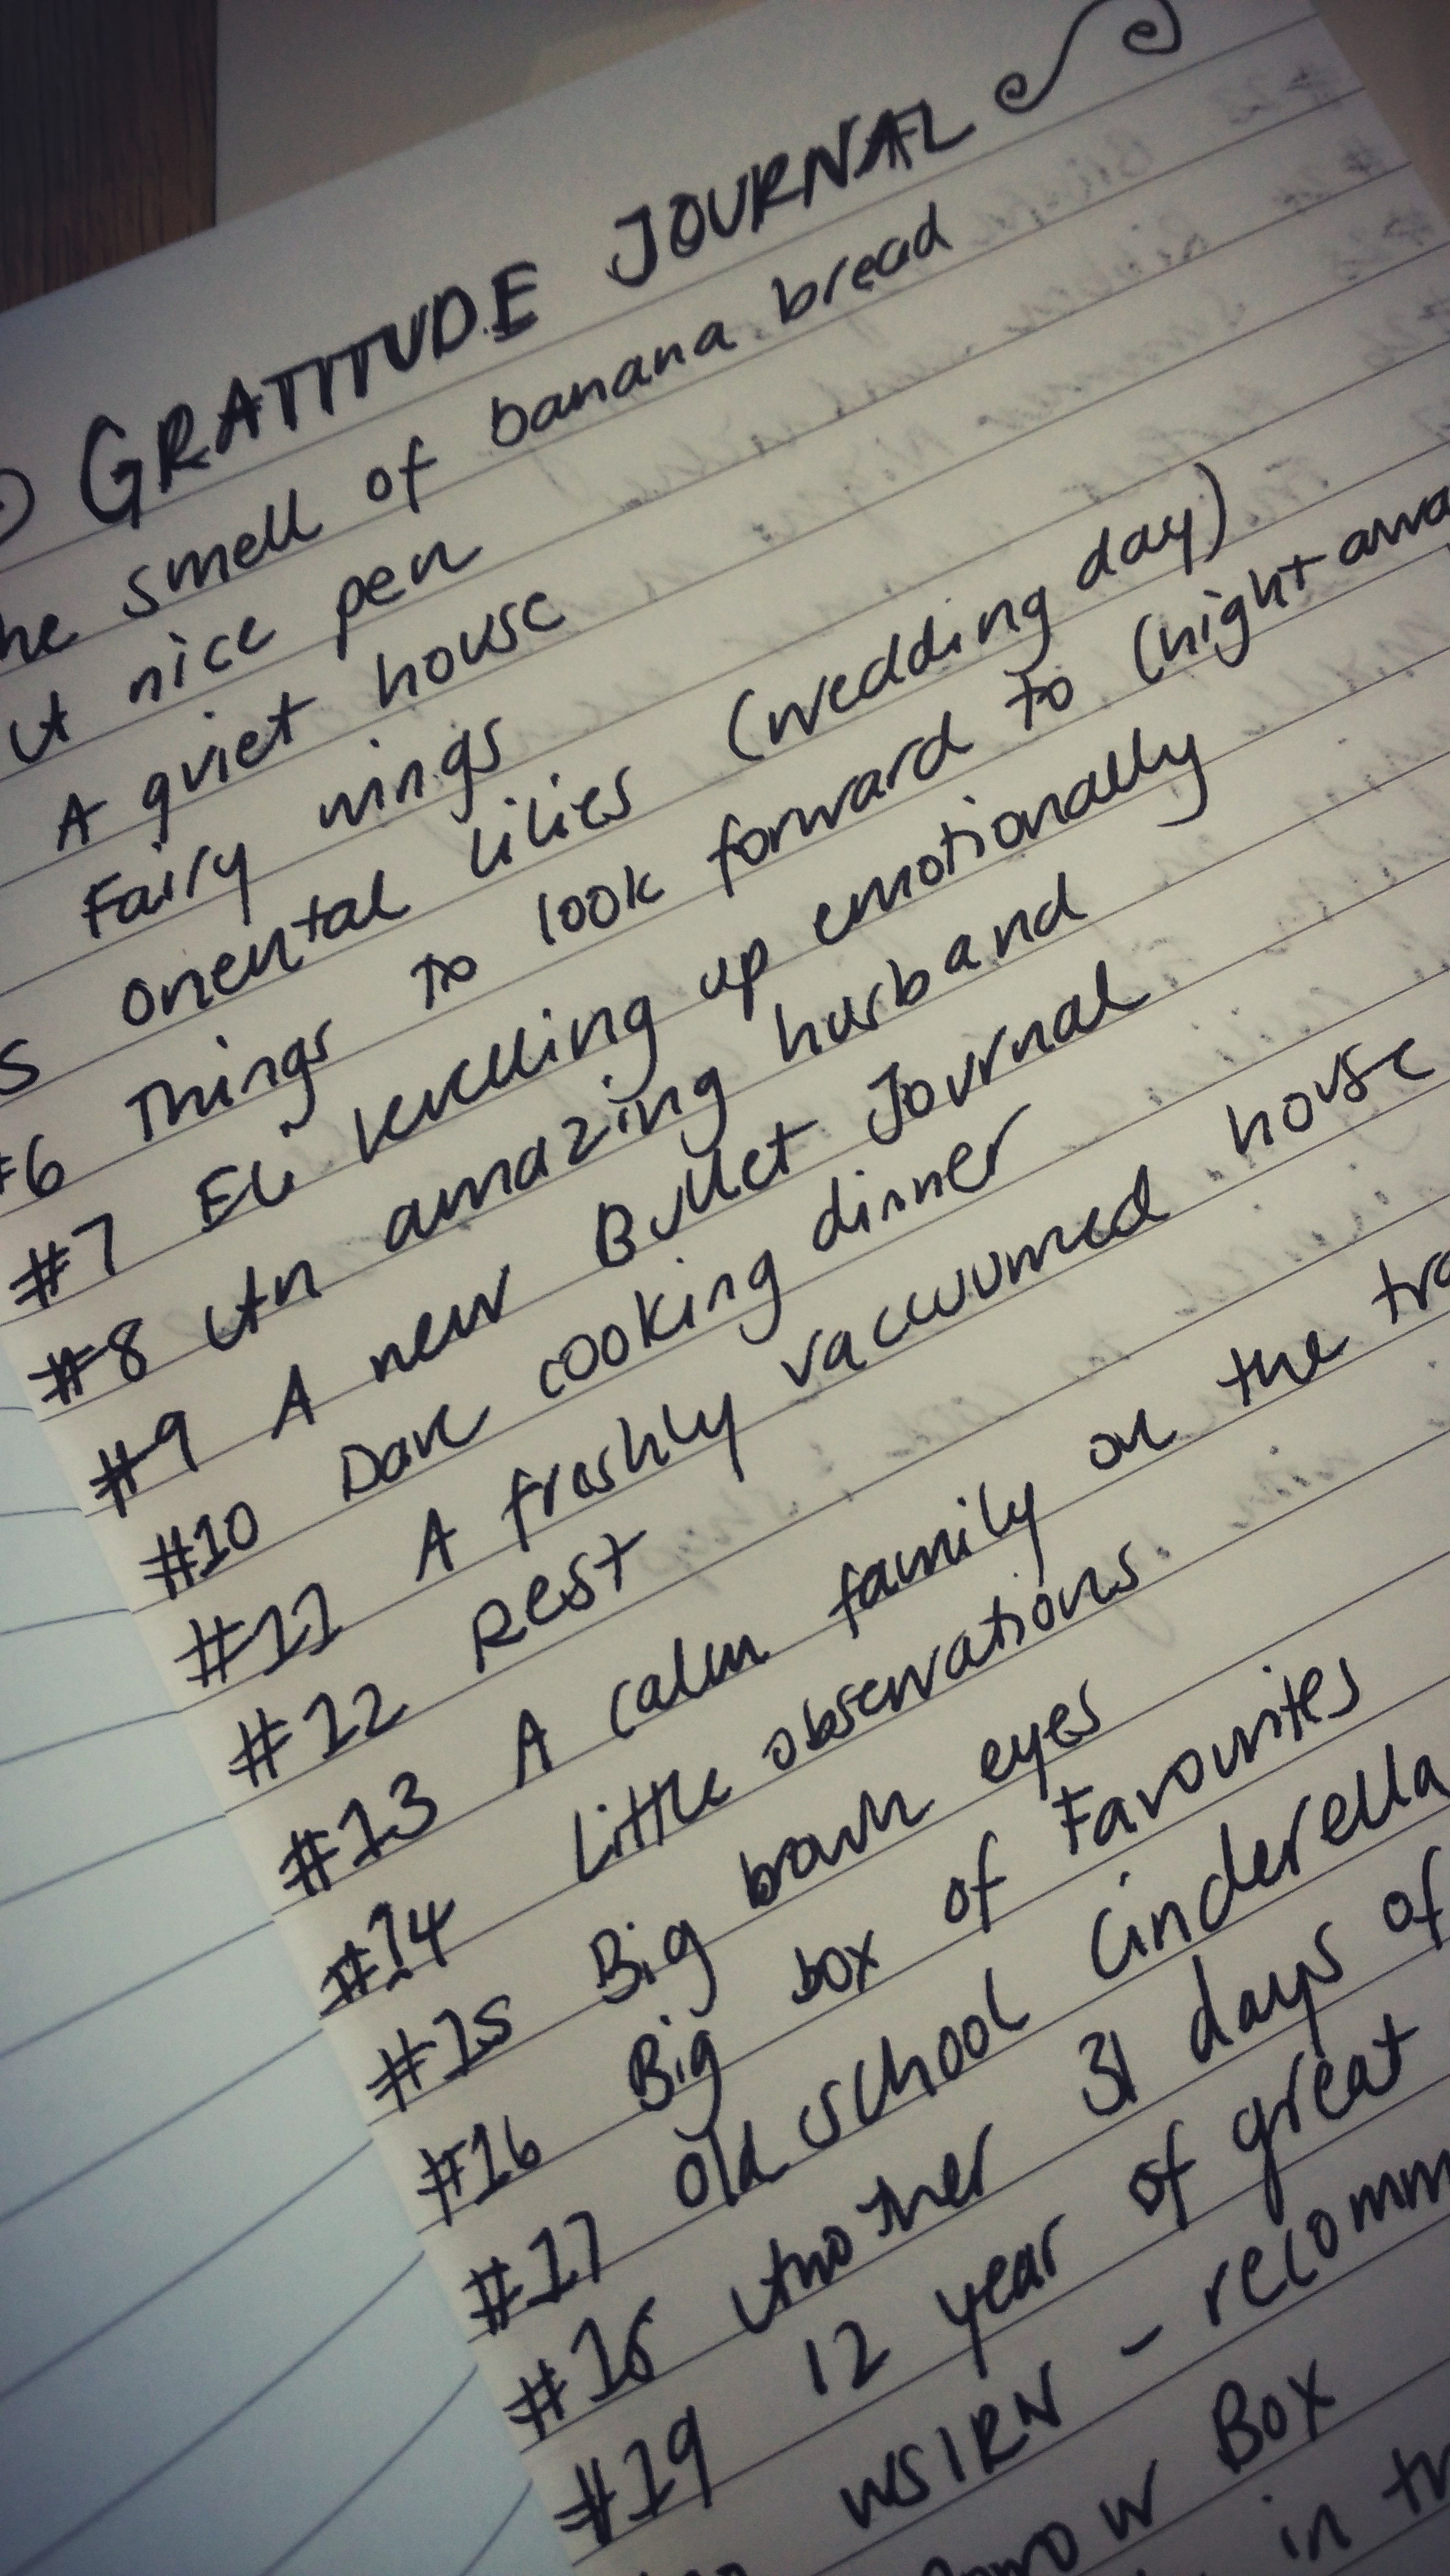 GRATITUDE JOURNAL
he smell of banana bread
A nice pen
A quiet house
Fairy wings
5 Oriental lilies (wedding day)
#6 Things to look forward to (night awa
#7 Eli levelling up emotionally
#8 An amazing husband
#9 A new Bullet Journal
#10 Dave cooking dinner
#11 A freshly vacuumed house
#12 Rest
#13 A calm family on the tra
#14 Little observations.
#15 Big brown eyes
#16 Big box of Favourites
#17 Old school Cinderella
#18 Another 31 days of
#19 12 year of great
WSIRN - recomm
Box
in tr